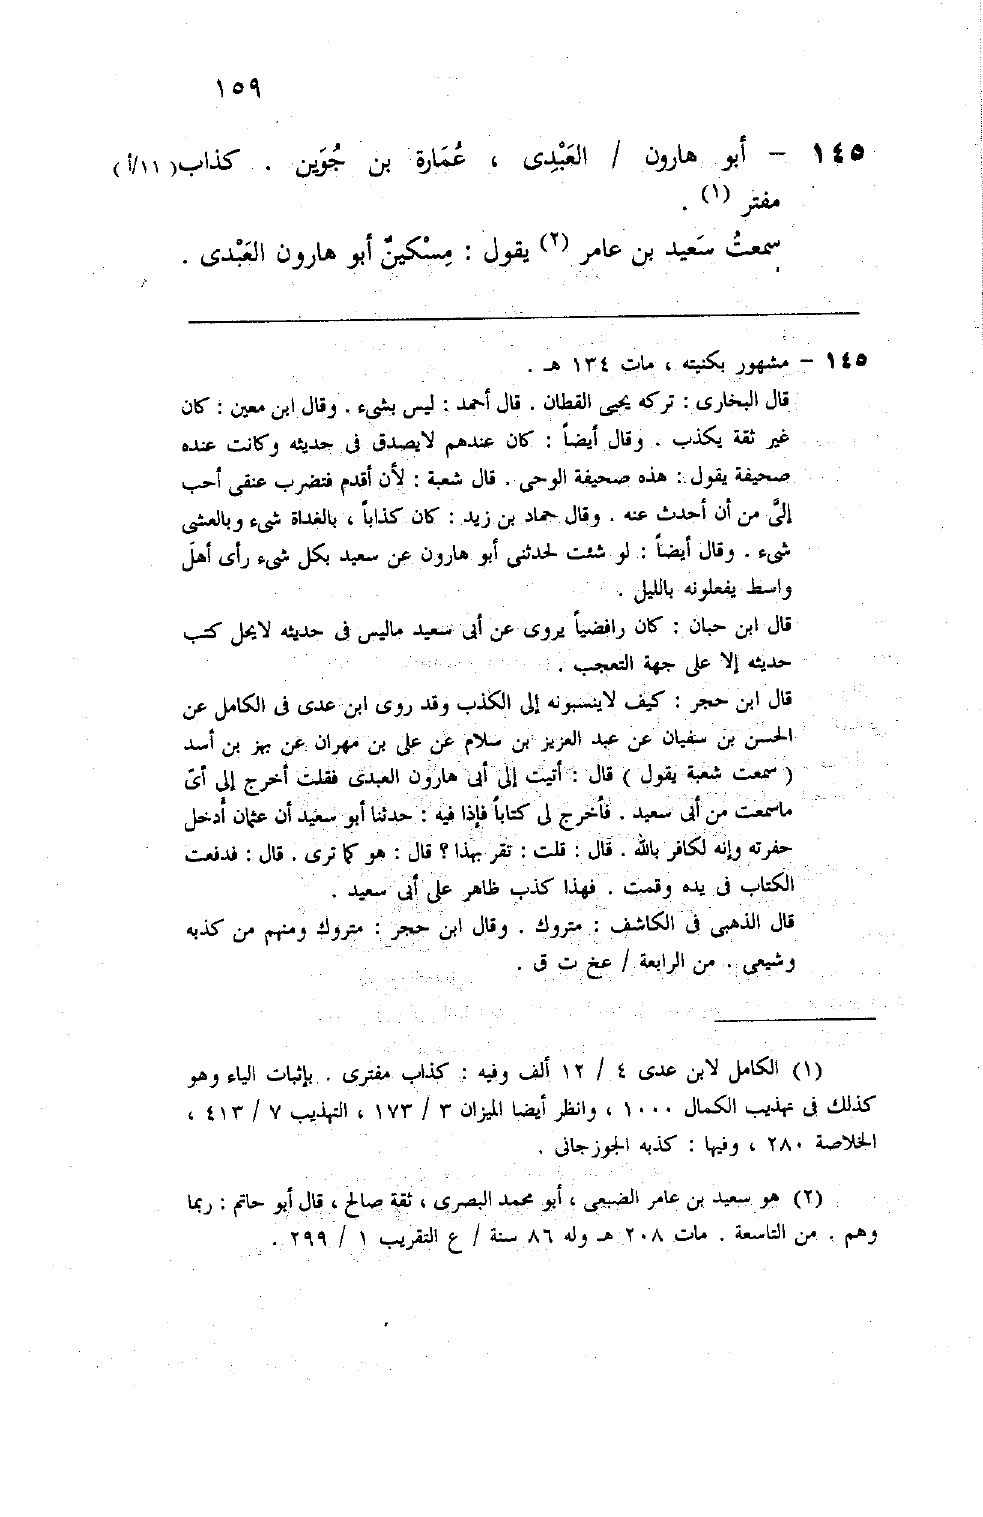 ١٥٩
١٤٥ - أبو هارون / العَبْدِى ، عُمَارة بن جُوَين . كذاب (١١/أ)
مفتر (١) .
سمعتُ سَعيد بن عامر (٢) يقول : مِسْكينٌ أبو هارون العَبْدى .
١٤٥ - مشهور بكنيته ، مات ١٣٤ هـ .
قال البخارى : تركه يحيى القطان . قال أحمد : ليس بشىء . وقال ابن معين : كان
غير ثقة يكذب . وقال أيضاً : كان عندهم لايصدق فى حديثه وكانت عنده
صحيفة يقول : هذه صحيفة الوحى . قال شعبة : لأن أقدم فتضرب عنقى أحب
إلىَّ من أن أحدث عنه . وقال حماد بن زيد : كان كذاباً ، بالغداة شىء وبالعشى
شىء . وقال أيضاً : لو شئت لحدثنى أبو هارون عن سعيد بكل شىء رأى أهل
واسط يفعلونه بالليل .
قال ابن حبان : كان رافضياً يروى عن أبى سعيد ماليس فى حديثه لايحل كتب
حديثه إلا على جهة التعجب .
قال ابن حجر : كيف لاينسبونه إلى الكذب وقد روى ابن عدى فى الكامل عن
الحسن بن سفيان عن عبد العزيز بن سلام عن على بن مهران عن بهز بن أسد
( سمعت شعبة يقول ) قال : أتيت إلى أبى هارون العبدى فقلت أخرج إلى أىّ
ماسمعت من أبى سعيد . فأخرج لى كتاباً فإذا فيه : حدثنا أبو سعيد أن عثمان أُدخل
حفرته وإنه لكافر بالله . قال : قلت : تقر بهذا ؟ قال : هو كما ترى . قال : فدفعت
الكتاب فى يده وقمت . فهذا كذب ظاهر على أبى سعيد .
قال الذهبى فى الكاشف : متروك . وقال ابن حجر : متروك ومنهم من كذبه
وشيعى . من الرابعة / عخ ت ق .
(١) الكامل لابن عدى ٤ / ١٢ ألف وفيه : كذاب مفترى . بإثبات الياء وهو
كذلك فى تهذيب الكمال ١٠٠٠ ، وانظر أيضا الميزان ٣ / ١٧٣ ، التهذيب ٧ / ٤١٣ ،
الخلاصة ٢٨٠ ، وفيها : كذبه الجوزجانى .
(٢) هو سعيد بن عامر الضبعى ، أبو محمد البصرى ، ثقة صالح ، قال أبو حاتم : ربما
وهم . من التاسعة . مات ٢٠٨ هـ وله ٨٦ سنة / ع التقريب ١ / ٢٩٩ .